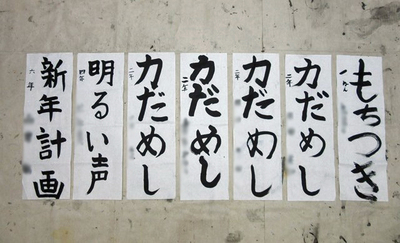 もちつき
一ねん
力だめし
二年
力だめし
二年
力だめし
二年
力だめし
二年
明るい声
四年
新年計画
六年